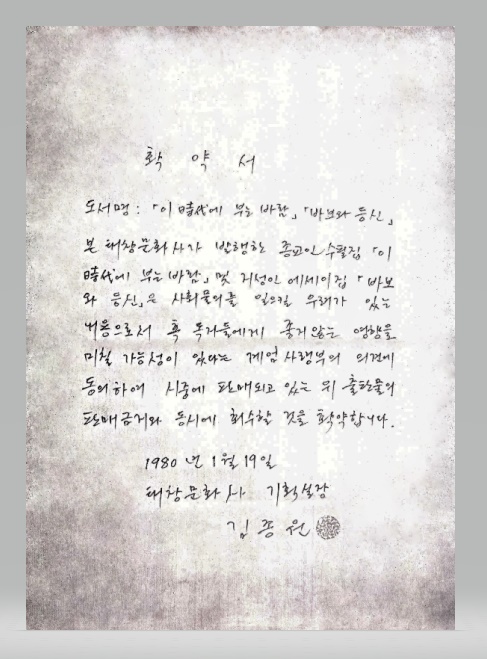 확 약 서
도서명 : 「이 時代에 부는 바람」, 「바보와 등신」
본 태창문화사가 발행한 종교인 수필집 「이
時代에 부는 바람」 및 지성인 에세이집 「바보
와 등신」은 사회물의를 일으킬 우려가 있는
내용으로서 혹 독자들에게 좋지않는 영향을
미칠 가능성이 있다는 계엄사령부의 의견에
동의하여 시중에 판매되고 있는 위 출판물의
판매금지와 동시에 회수할 것을 확약합니다.
1980 년 1월 19일
태창문화사 기획실장
김종원